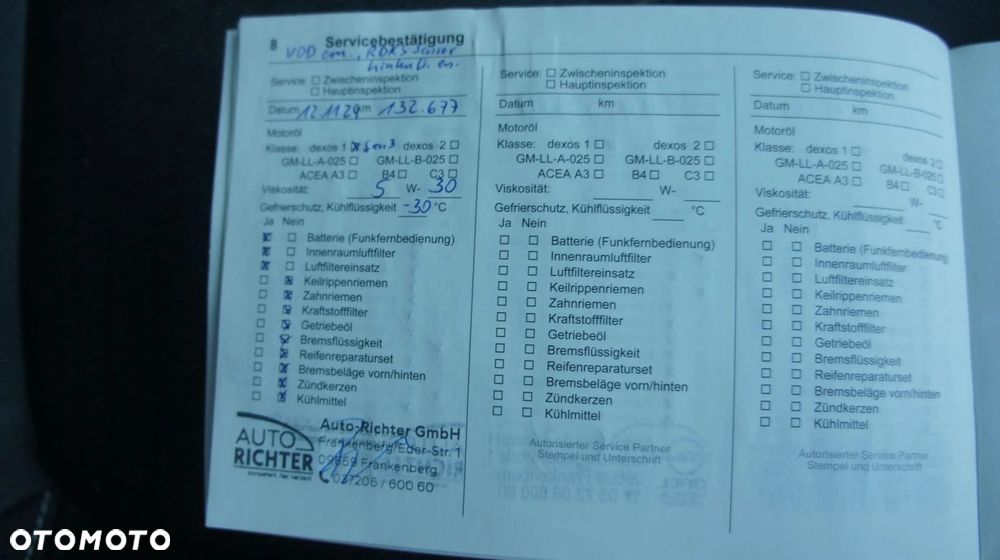 8 Servicebestätigung
VDD em., RDKS Sensor
hinten li. en.
Service: ☐ Zwischeninspektion
☐ Hauptinspektion
Datum 12.11.24 km 132.677
Motoröl
Klasse: dexos 1 ☒ Gen3 dexos 2 ☐
GM-LL-A-025 ☐ GM-LL-B-025 ☐
ACEA A3 ☐ B4 ☐ C3 ☐
Viskosität: 5 W- 30
Gefrierschutz, Kühlflüssigkeit -30 °C
Ja Nein
☒ ☐ Batterie (Funkfernbedienung)
☒ ☐ Innenraumluftfilter
☒ ☐ Luftfiltereinsatz
☐ ☒ Keilrippenriemen
☐ ☒ Zahnriemen
☐ ☒ Kraftstofffilter
☐ ☒ Getriebeöl
☐ ☒ Bremsflüssigkeit
☐ ☒ Reifenreparaturset
☐ ☒ Bremsbeläge vorn/hinten
☐ ☒ Zündkerzen
☐ ☒ Kühlmittel
AUTO
RICHTER
Auto-Richter GmbH
Frankenberg/Eder-Str. 1
09669 Frankenberg
037206 / 600 60
Service: ☐ Zwischeninspektion
☐ Hauptinspektion
Datum km
Motoröl
Klasse: dexos 1 ☐ dexos 2 ☐
GM-LL-A-025 ☐ GM-LL-B-025 ☐
ACEA A3 ☐ B4 ☐ C3 ☐
Viskosität: W-
Gefrierschutz, Kühlflüssigkeit °C
Ja Nein
☐ ☐ Batterie (Funkfernbedienung)
☐ ☐ Innenraumluftfilter
☐ ☐ Luftfiltereinsatz
☐ ☐ Keilrippenriemen
☐ ☐ Zahnriemen
☐ ☐ Kraftstofffilter
☐ ☐ Getriebeöl
☐ ☐ Bremsflüssigkeit
☐ ☐ Reifenreparaturset
☐ ☐ Bremsbeläge vorn/hinten
☐ ☐ Zündkerzen
☐ ☐ Kühlmittel
Autorisierter Service Partner
Stempel und Unterschrift
Service: ☐ Zwischeninspektion
☐ Hauptinspektion
Datum km
Motoröl
Klasse: dexos 1 ☐ dexos 2 ☐
GM-LL-A-025 ☐ GM-LL-B-025 ☐
ACEA A3 ☐ B4 ☐ C3 ☐
Viskosität: W-
Gefrierschutz, Kühlflüssigkeit °C
Ja Nein
☐ ☐ Batterie (Funkfernbedienung)
☐ ☐ Innenraumluftfilter
☐ ☐ Luftfiltereinsatz
☐ ☐ Keilrippenriemen
☐ ☐ Zahnriemen
☐ ☐ Kraftstofffilter
☐ ☐ Getriebeöl
☐ ☐ Bremsflüssigkeit
☐ ☐ Reifenreparaturset
☐ ☐ Bremsbeläge vorn/hinten
☐ ☐ Zündkerzen
☐ ☐ Kühlmittel
Autorisierter Service Partner
Stempel und Unterschrift
OTOMOTO